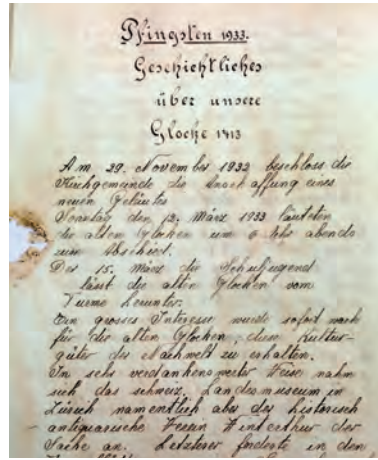 Pfingsten 1933.
Geschichtliches
über unsere
Glocke 1413
Am 29. November 1932 beschloss die
Kirchgemeinde die Anschaffung eines
neuen Geläutes
Sonntag den 12. März 1933 läuteten
die alten Glocken um 6 Uhr abends
zum Abschied.
Der 15. März die Schuljugend
lässt die alten Glocken vom
Turme herunter.
Ein grosses Interesse wurde sofort wach
für die alten Glocken, diese Kultur-
güter der Nachwelt zu erhalten.
In sehr verdankenswerter Weise nahm
sich das schweiz. Landesmuseum in
Zürich namentlich aber der historisch
antiquarische Verein Winterthur der
Sache an. Letzterer forderte in den